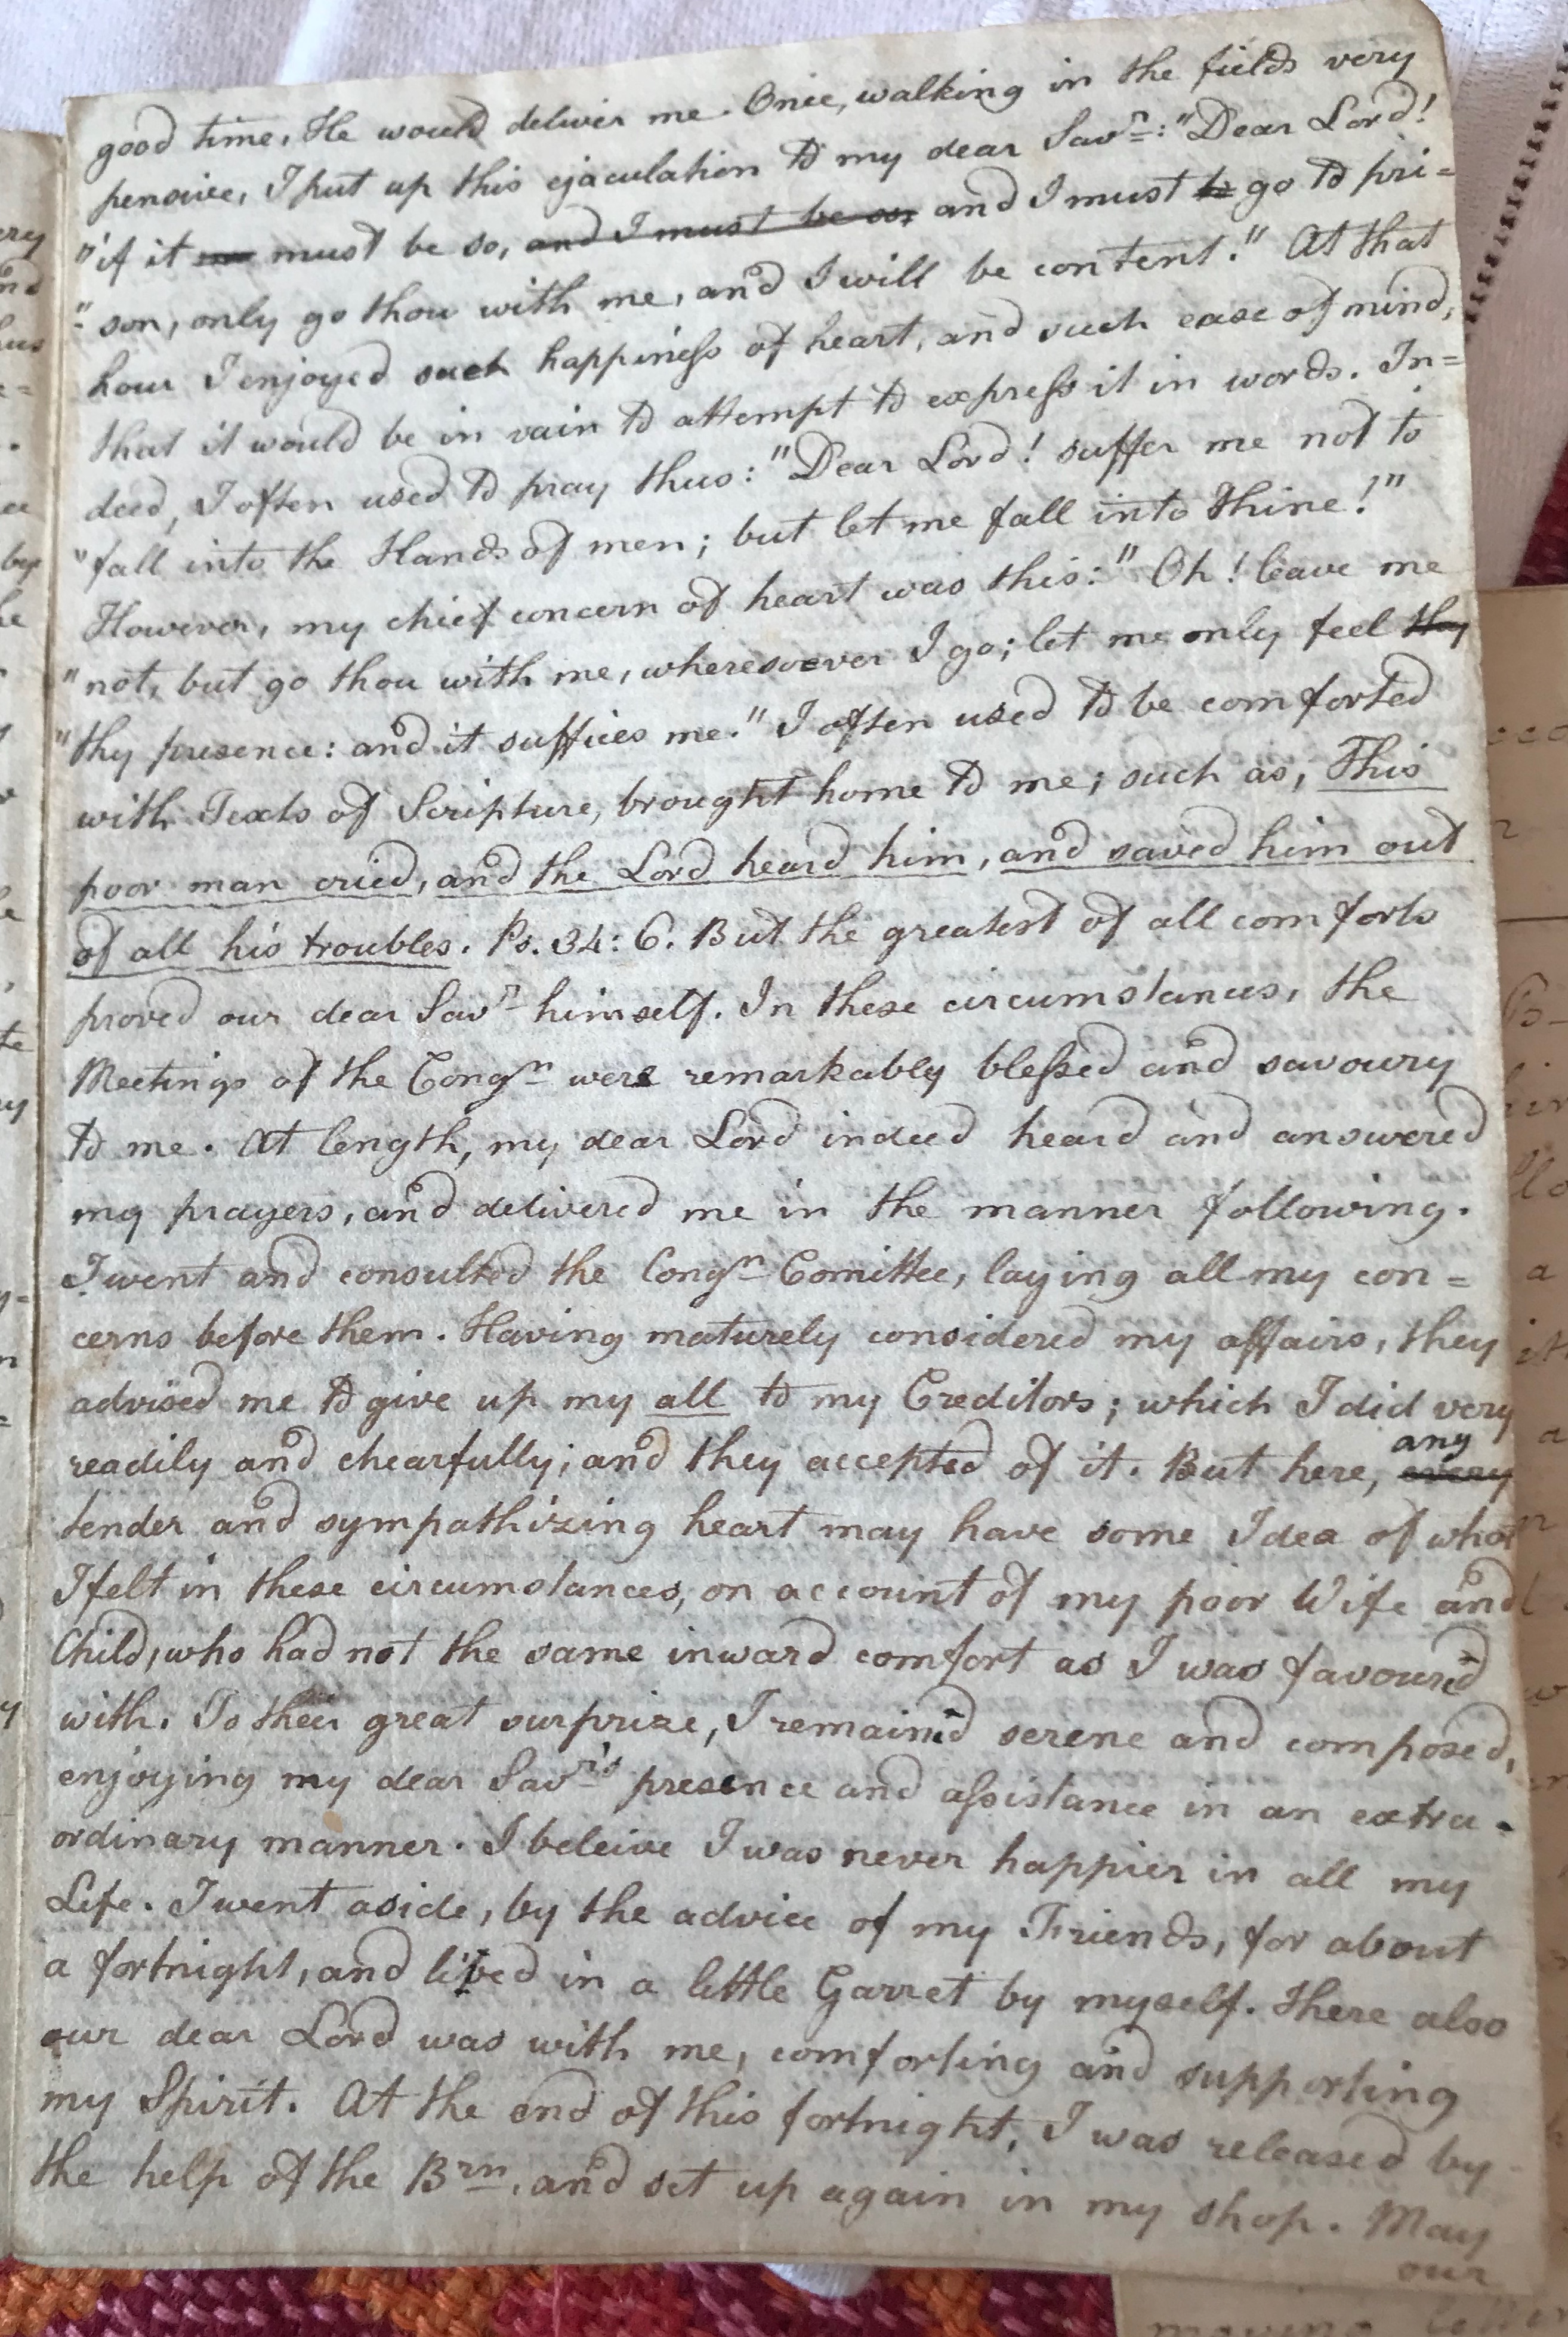 good time, He would deliver me. Once, walking in the fields very
pensive, I put up this ejaculation to my dear Savr: "Dear Lord!
"if it must be so, and I must be so, and I must be go to pri=
"son, only go thou with me, and I will be content." At that
hour I enjoyed such happiness of heart, and such ease of mind,
that it would be in vain to attempt to express it in words. In=
deed, I often used to pray thus: "Dear Lord! suffer me not to
"fall into the Hands of men; but let me fall into Thine!"
However, my chief concern of heart was this: "Oh! leave me
"not, but go thou with me, wheresoever I go; let me only feel thy
"thy presence: and it suffices me." I often used to be comforted
with Texts of Scripture, brought home to me; such as, This
poor man cried, and the Lord heard him, and saved him out
of all his troubles. Ps. 34: 6. But the greatest of all comforts
proved our dear Savr himself. In these circumstances, the
Meetings of the Congn were remarkably blessed and savoury
to me. At length, my dear Lord indeed heard and answered
my prayers, and delivered me in the manner following.
I went and consulted the Congn Comittee, laying all my con=
cerns before them. Having maturely considered my affairs, they
advised me to give up my all to my Creditors; which I did very
readily and chearfully; and they accepted of it. But here, every any
tender and sympathizing heart may have some Idea of what
I felt in these circumstances, on account of my poor Wife and
Child, who had not the same inward comfort as I was favoured
with. To their great surprize, I remained serene and composed,
enjoying my dear Savr's presence and assistance in an extra-
ordinary manner. I beleive I was never happier in all my
Life. I went aside, by the advice of my Friends, for about
a fortnight, and lived in a little Garret by myself. There also
our dear Lord was with me, comforting and supporting
my Spirit. At the end of this fortnight, I was released by
the help of the Brn, and set up again in my shop. May
our